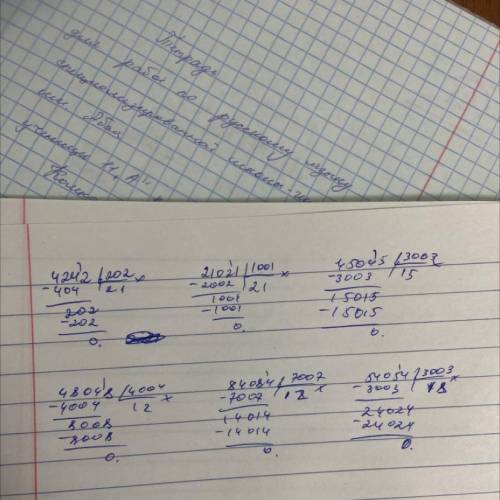 Тетрадь
для работ по русскому языку
специализированной школы-
им Абая
ученицы 11 "А"
4242 | 202 x
- 404 | 21
202
- 202
0.
21021 | 1001 x
- 2002 | 21
1001
- 1001
0.
45045 | 3003 x
- 3003 | 15
15015
- 15015
0.
48048 | 4004 x
- 4004 | 12
8008
- 8008
0.
84084 | 7007 x
- 7007 | 12
14014
- 14014
0.
54054 | 3003 x
- 3003 | 18
24024
- 24024
0.